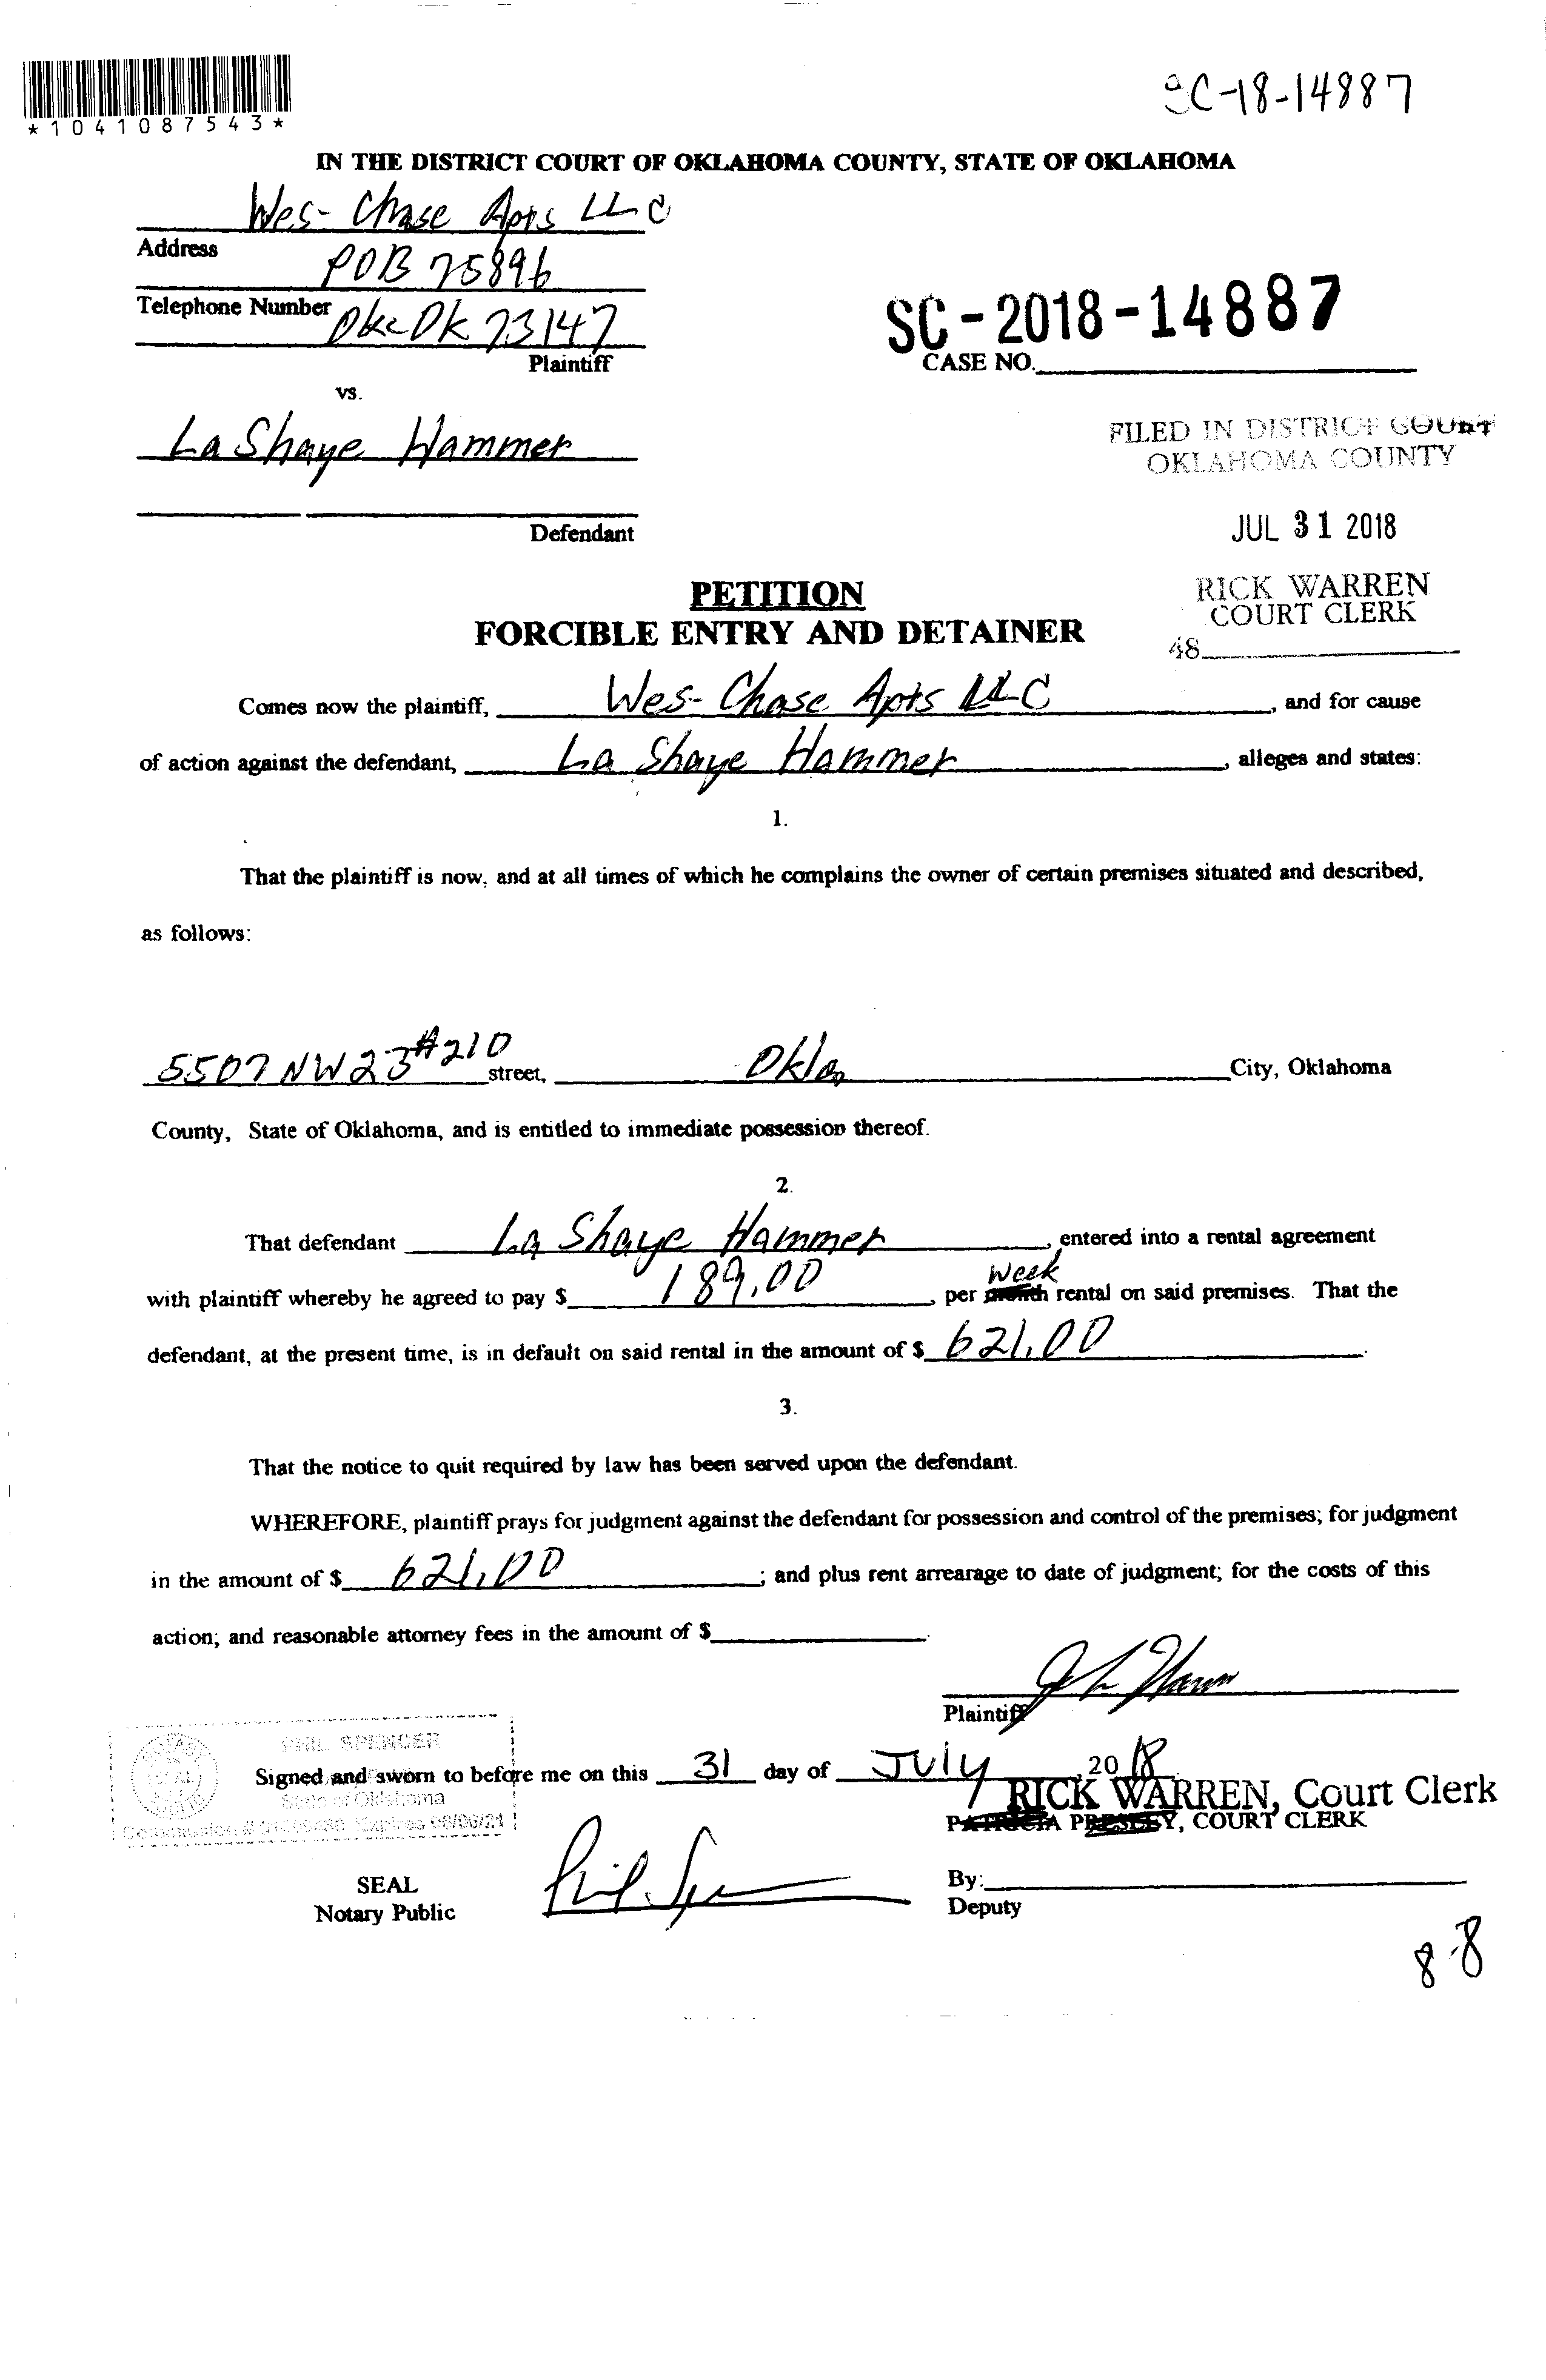 *1041087543*
SC-18-14887
IN THE DISTRICT COURT OF OKLAHOMA COUNTY, STATE OF OKLAHOMA
Wes-Chase Apts LLC
Address
POB 75896
Telephone Number
Okc Ok 73147
Plaintiff
SC-2018-14887
CASE NO.
vs.
LaShaye Hammer
FILED IN DISTRICT COURT
OKLAHOMA COUNTY
Defendant
JUL 31 2018
PETITION
RICK WARREN
COURT CLERK
FORCIBLE ENTRY AND DETAINER
48
Comes now the plaintiff, Wes-Chase Apts LLC, and for cause
of action against the defendant, La Shaye Hammer, alleges and states:
1.
That the plaintiff is now, and at all times of which he complains the owner of certain premises situated and described,
as follows:
5507 NW 23 #210 street, Okla City, Oklahoma
County, State of Oklahoma, and is entitled to immediate possession thereof.
2.
That defendant La Shaye Hammer, entered into a rental agreement
with plaintiff whereby he agreed to pay $ 189.00, per month week rental on said premises. That the
defendant, at the present time, is in default on said rental in the amount of $ 621.00.
3.
That the notice to quit required by law has been served upon the defendant.
WHEREFORE, plaintiff prays for judgment against the defendant for possession and control of the premises; for judgment
in the amount of $ 621.00; and plus rent arrearage to date of judgment; for the costs of this
action; and reasonable attorney fees in the amount of $.
Plaintiff
PHIL SPENCER
Signed and sworn to before me on this 31 day of July, 2018
State of Oklahoma
RICK WARREN, Court Clerk
PATRICIA PRESLEY, COURT CLERK
SEAL
Notary Public
By:
Deputy
8-8